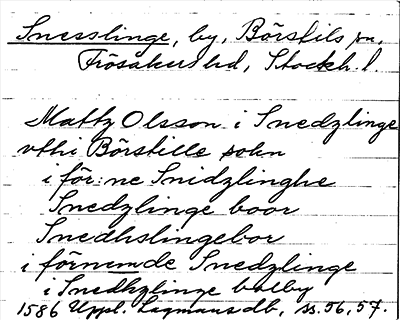 Snesslinge, by, Börstils sn,
Frösåkers hd, Stockh. l.
Mattz Olsson i Snedzlinge
vthi Börstille sokn
i för:ne Snidzlinghe
Snedzlinge boor
Snedhslingebor
i förnemde Snedzlinge
i Snedhzlinge bolby
1586 Uppl. Lagmansdb, ss. 56, 57.